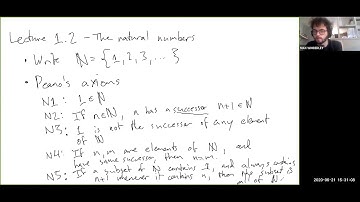 Lecture 1.2 - The natural numbers
• Write ℕ = {1, 2, 3, ...}
• Peano's axioms
N1: 1 ∈ ℕ
N2: If n ∈ ℕ, n has a successor n+1 ∈ ℕ
N3: 1 is not the successor of any element
of ℕ
N4: If n, m are elements of ℕ, and
have same successor, then n=m.
N5: If a subset of ℕ contains 1, and always contains
n+1 whenever it contains n, then the subset is
all of ℕ.
2020-06-21 15:31:03